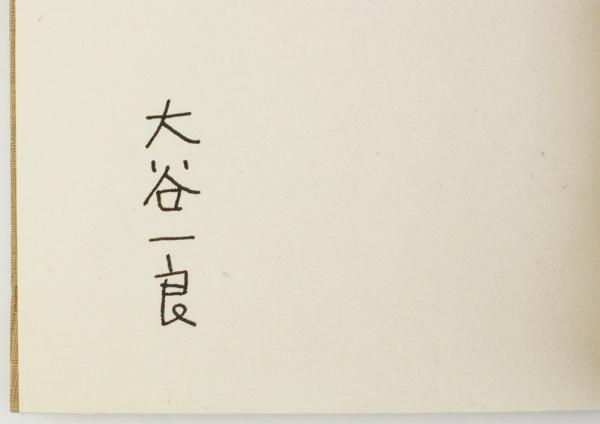 大谷一良